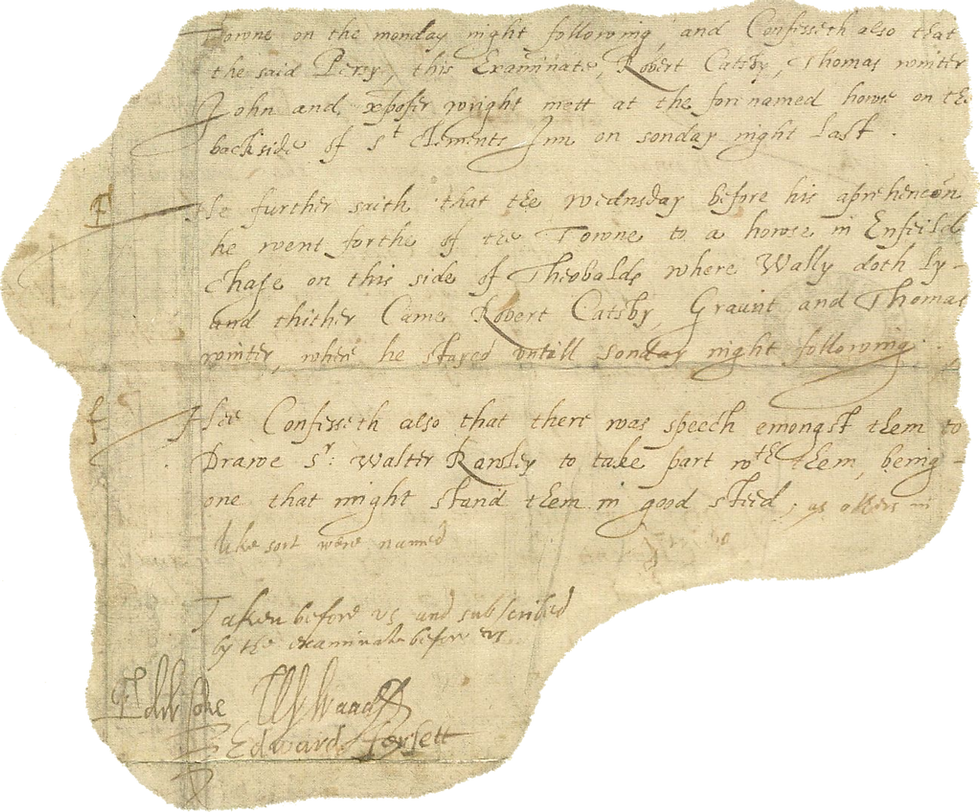 Towne on the monday night following, and Confesseth also that
the said Percy, this Examinate, Robert Catsby, Thomas winter
John and xpofer wright mett at the forenamed howse on the
backside of St Clements Inn on sonday night last.
F
He further saith that the wednsday before his aprehencon
he went forthe of the Towne to a howse in Enfeild
Chase on this side of Theobalds where Wally doth ly-
and thither Came Robert Catsby, Graunt and Thomas
winter, where he stayed untill sonday night following.
f
Hee Confesseth also that there was speech emongst them to
Drawe Sr: Walter Rawley to take part wth them, being
one that might stand them in good steed, as others in
like sort were named
Taken before us and subscribed
by the examinate before us
Edw Coke W Waad
Edward Forsett